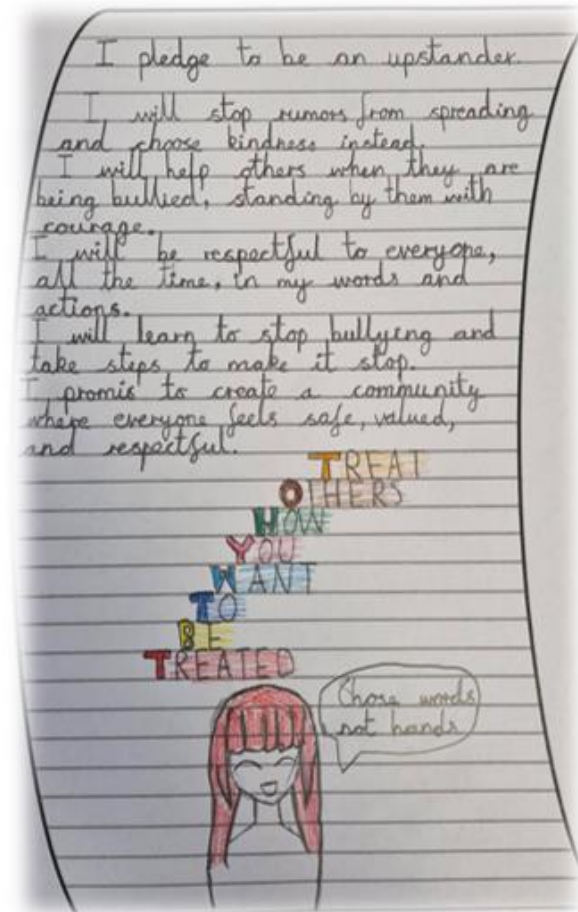 I pledge to be an upstander.
I will stop rumors from spreading
and choose kindness instead.
I will help others when they are
being bullied, standing by them with
courage.
I will be respectful to everyone,
all the time, in my words and
actions.
I will learn to stop bullying and
take steps to make it stop.
I promis to create a community
where everyone feels safe, valued,
and respectful.
TREAT
OTHERS
HOW
YOU
WANT
TO
BE
TREATED
Chose words
not hands